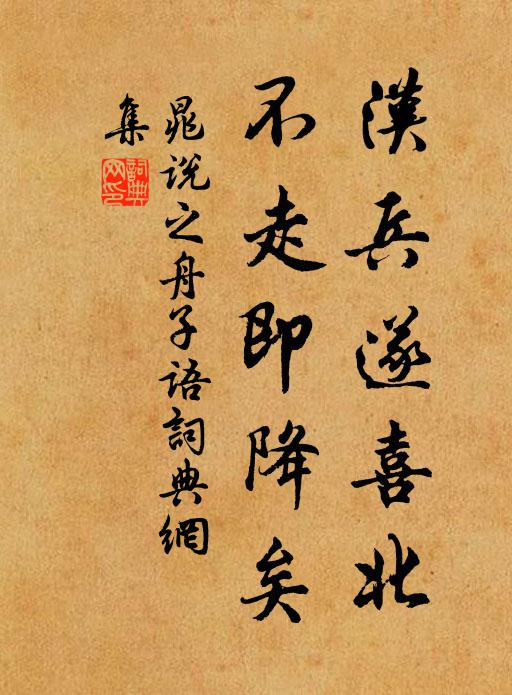 漢兵遂喜北
不走即降矣
晁說之舟子語詞典網
集
詞典
网印